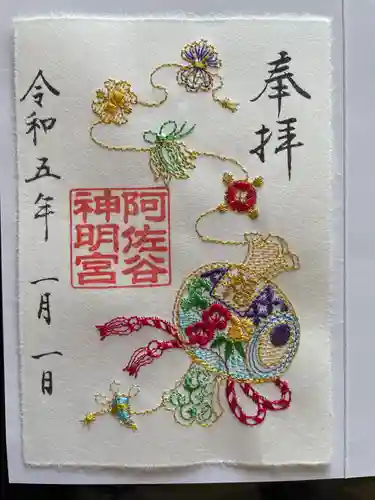 奉拝
阿佐谷
神明宮
令和五年 一月一日